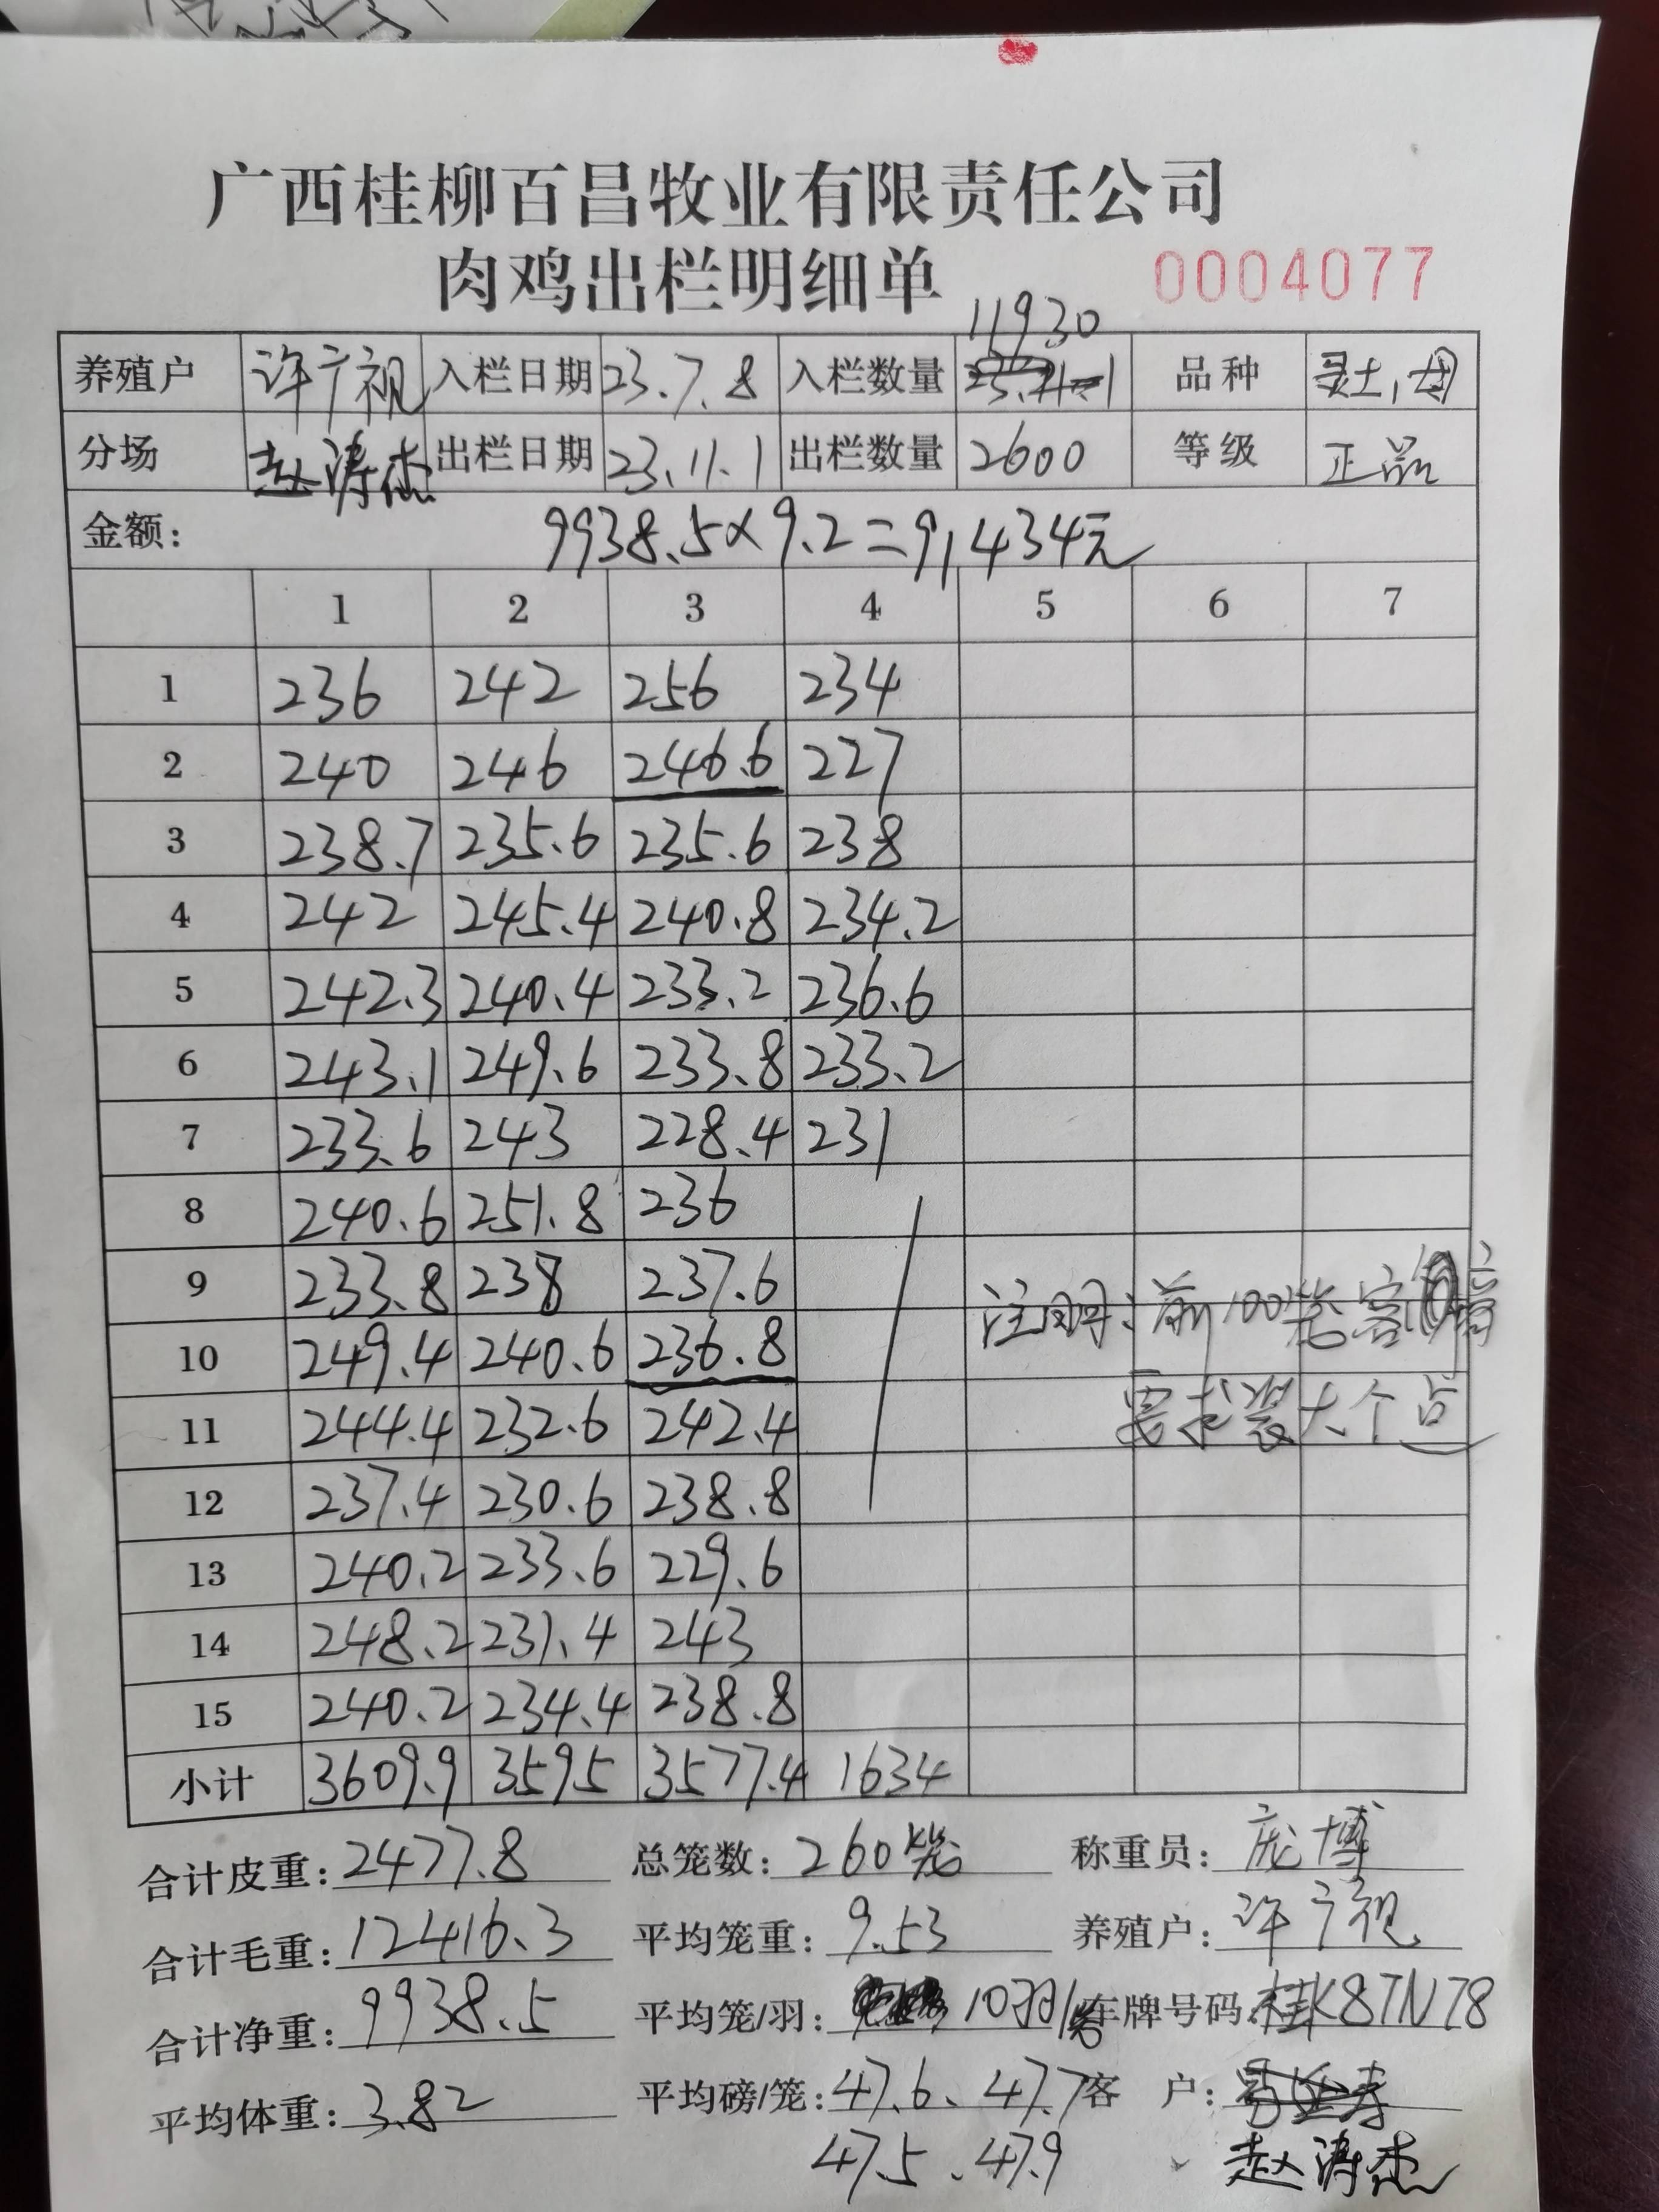 广西桂柳百昌牧业有限责任公司
肉鸡出栏明细单 0004077
11930
养殖户 许广视 入栏日期 23.7.8 入栏数量 品种 土,母
分场 赵涛杰 出栏日期 23.11.1 出栏数量 2600 等级 正品
金额: 9938.5×9.2=91434元
1 2 3 4 5 6 7
1 236 242 256 234
2 240 246 246.6 227
3 238.7 235.6 235.6 238
4 242 245.4 240.8 234.2
5 242.3 240.4 233.2 236.6
6 243.1 249.6 233.8 233.2
7 233.6 243 228.4 231
8 240.6 251.8 236
9 233.8 238 237.6
注明:前100笼客
10 249.4 240.6 236.8
11 244.4 232.6 242.4 要求装大个点
12 237.4 230.6 238.8
13 240.2 233.6 229.6
14 248.2 231.4 243
15 240.2 234.4 238.8
小计 3609.9 3595 3577.4 1634
合计皮重: 2477.8 总笼数: 260笼 称重员: 庞博
合计毛重: 12416.3 平均笼重: 9.53 养殖户: 许广视
合计净重: 9938.5 平均笼/羽: 10羽/笼 车牌号码: 桂K87N78
平均体重: 3.82 平均磅/笼: 47.6、47.7 客 户:
47.5、47.9 赵涛杰